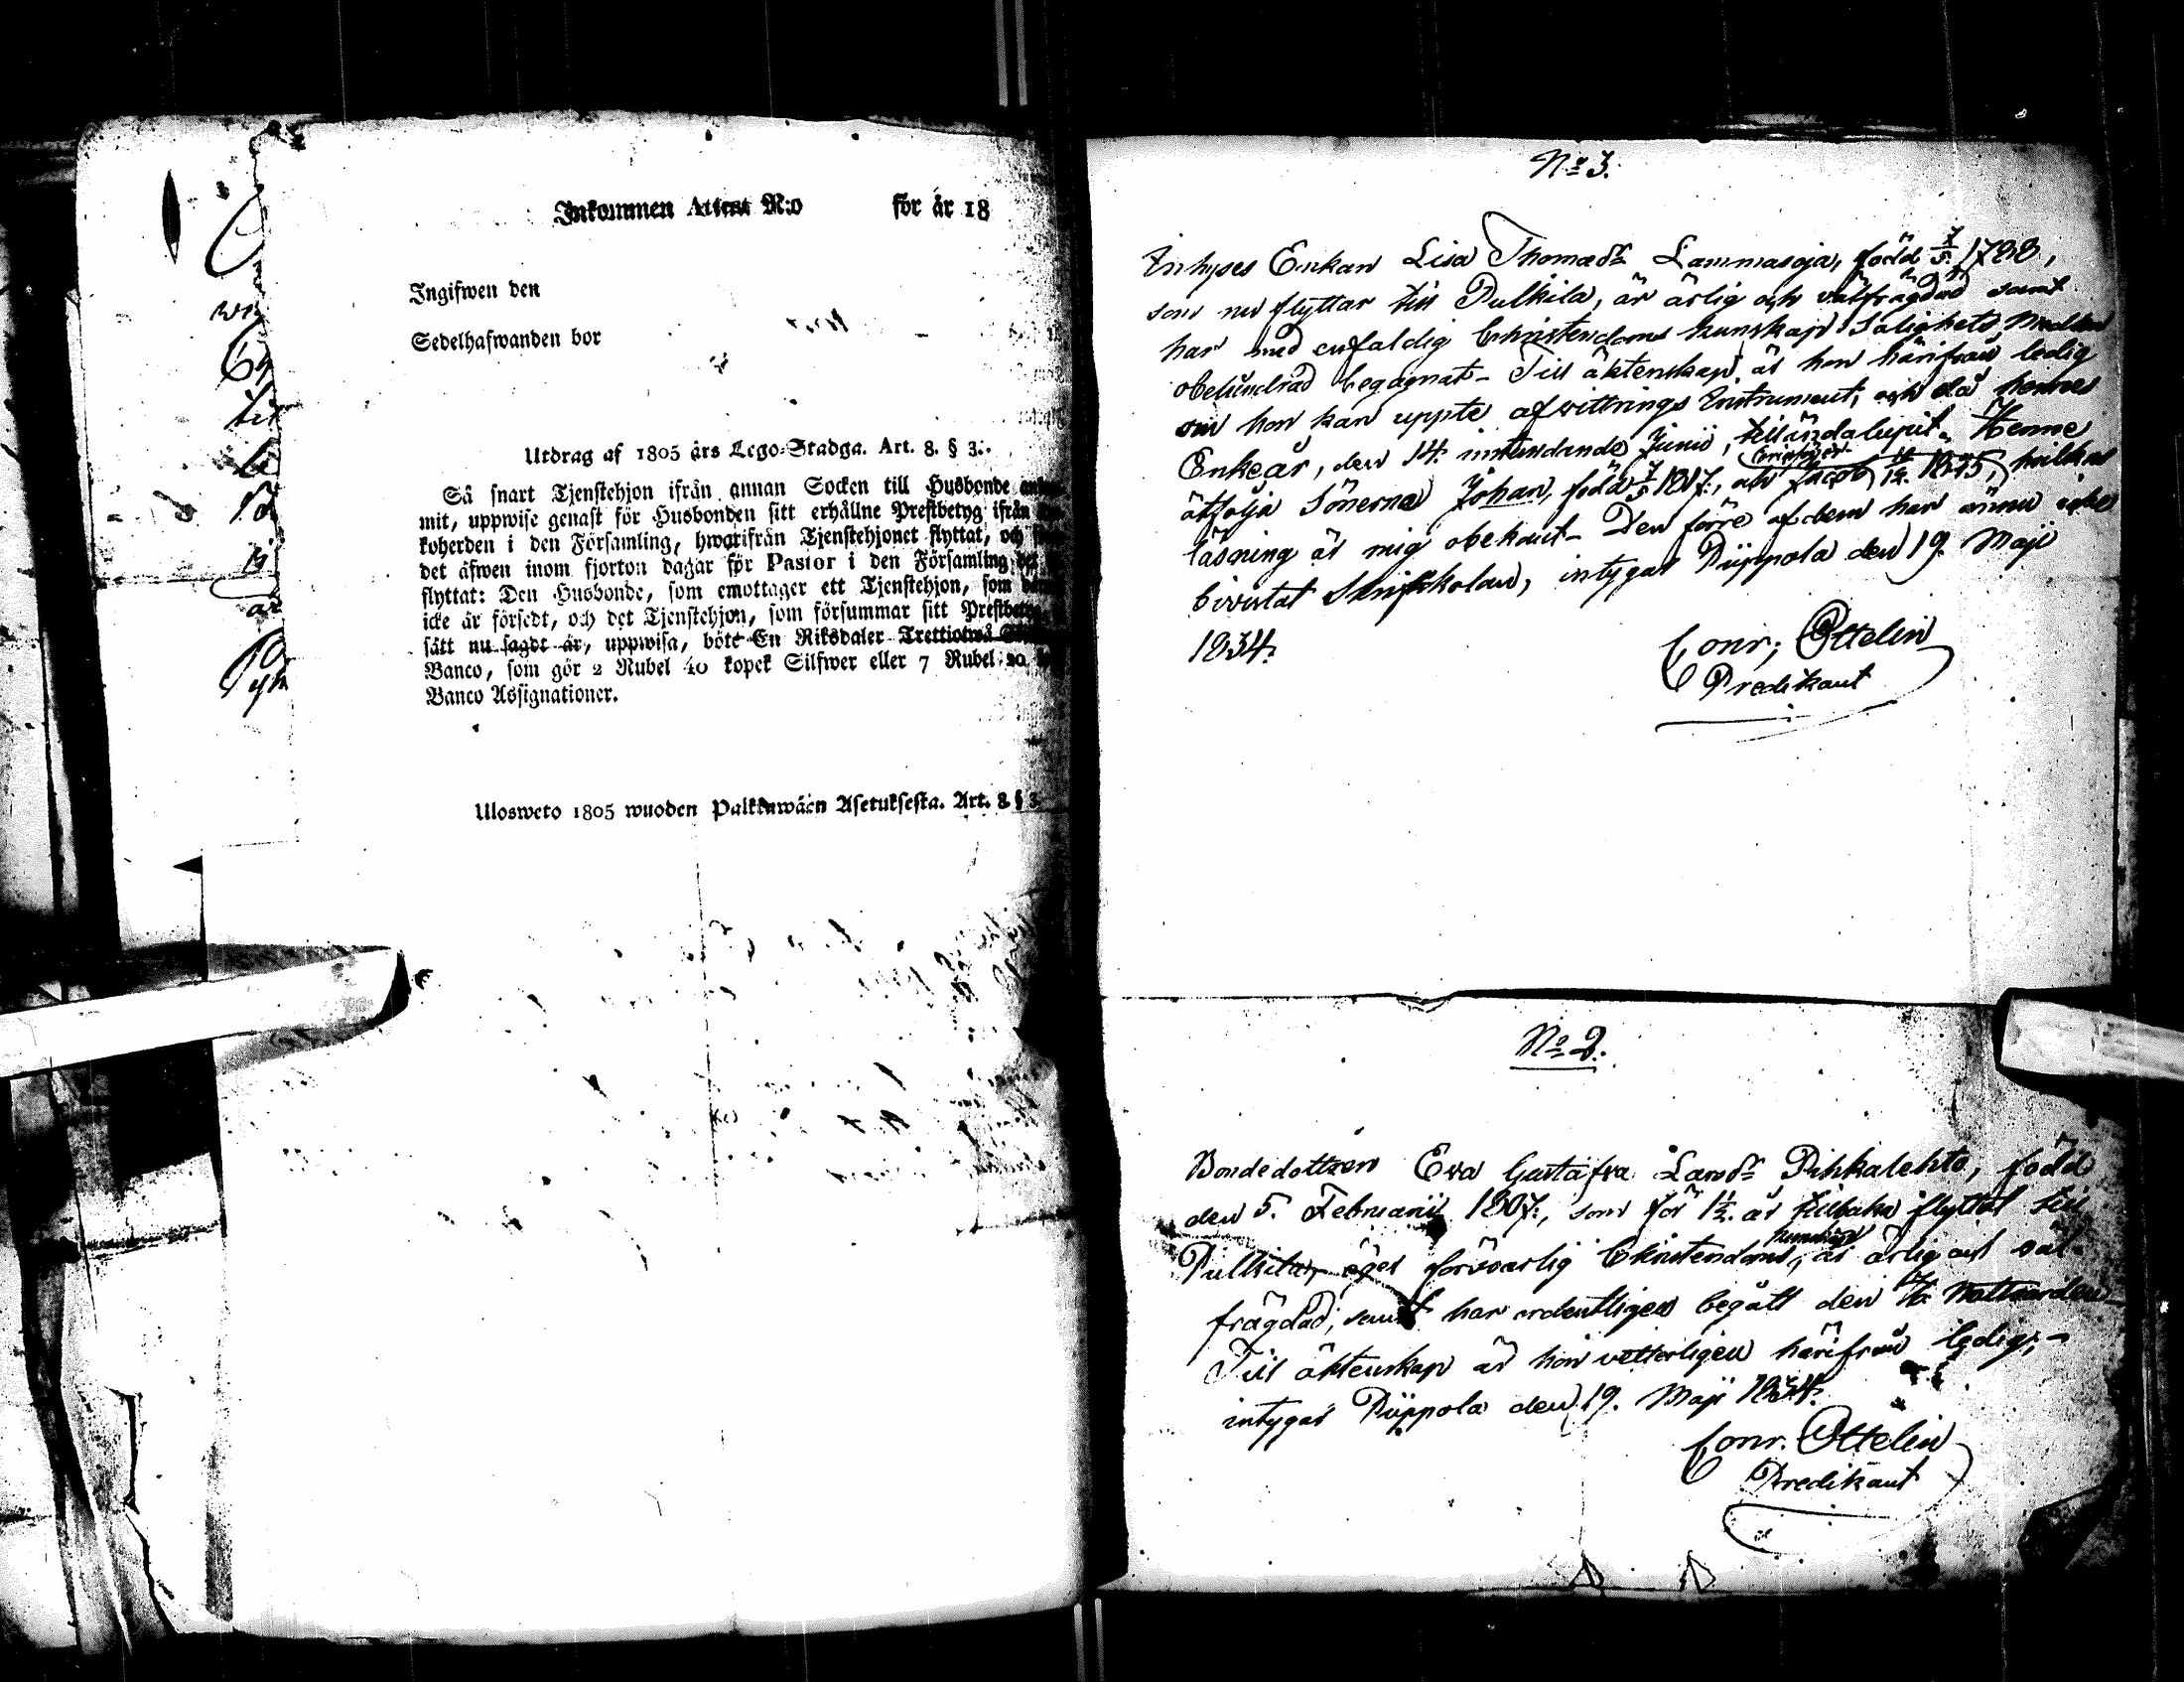 Inkommen Attest N:o för år 18
Ingifwen den
Sedelhafwanden bor
Utdrag af 1805 års Lego-Stadga. Art. 8. § 3.
Så snart Tjenstehjon ifrån annan Socken till Husbonde
mit, uppwise genast för Husbonden sitt erhållne Prestbetyg ifrån
koherden i den Församling, hwarifrån Tjenstehjonet flyttat, och
det äfwen inom fjorton dagar för Pastor i den Församling
flyttat: Den Husbonde, som emottager ett Tjenstehjon, som
icke är försedt, och det Tjenstehjon, som försummar sitt
sätt nu sagdt är, uppwisa, böte En Riksdaler Trettiotwå
Banco, som gör 2 Rubel 40 kopek Silfwer eller 7 Rubel 20
Banco Assignationer.
Ulosweto 1805 wuoden Palkkawäen Asetuksesta. Art. 8. § 3.
No 3.
Inhyses Enkan Lisa Thomasdr Lammasoja, född 7/5 1788,
som nu flyttar till Pulkila, är ärlig och välfrägdad samt
har med enfaldig Christendoms kunskap Salighets Medlen
obehindrad begagnat – Till äktenskap är hon härifrån ledig
om hon kan uppte afwittrings Instrument, och då hennes
Enkeår, den 14. instundande Junii, tilländalupit. Henne
åtfölja Sönerna Johan, född 7/5 1817, och Jacob 1825, hvilkas
läsning är mig obekant – Den förre af dem har ännu icke
bivistat Skriftskolan, intygar Pippola den 19. Maji
1834.
Conr. Ottelin
Predikant
No 2.
Bondedottren Eva Gustafva Larsdr Pihkalehto, född
den 5. Februarii 1807, som för 1½ år tillbaka flyttat till
Pulkila, äger försvarlig Christendoms kunskap, är ärlig och väl-
frägdad, samt har ordentligen begått den H. Nattvarden
Till äktenskap är hon vetterligen härifrån ledig, –
intygar Pippola den 19. Maji 1834.
Conr. Ottelin
Predikant